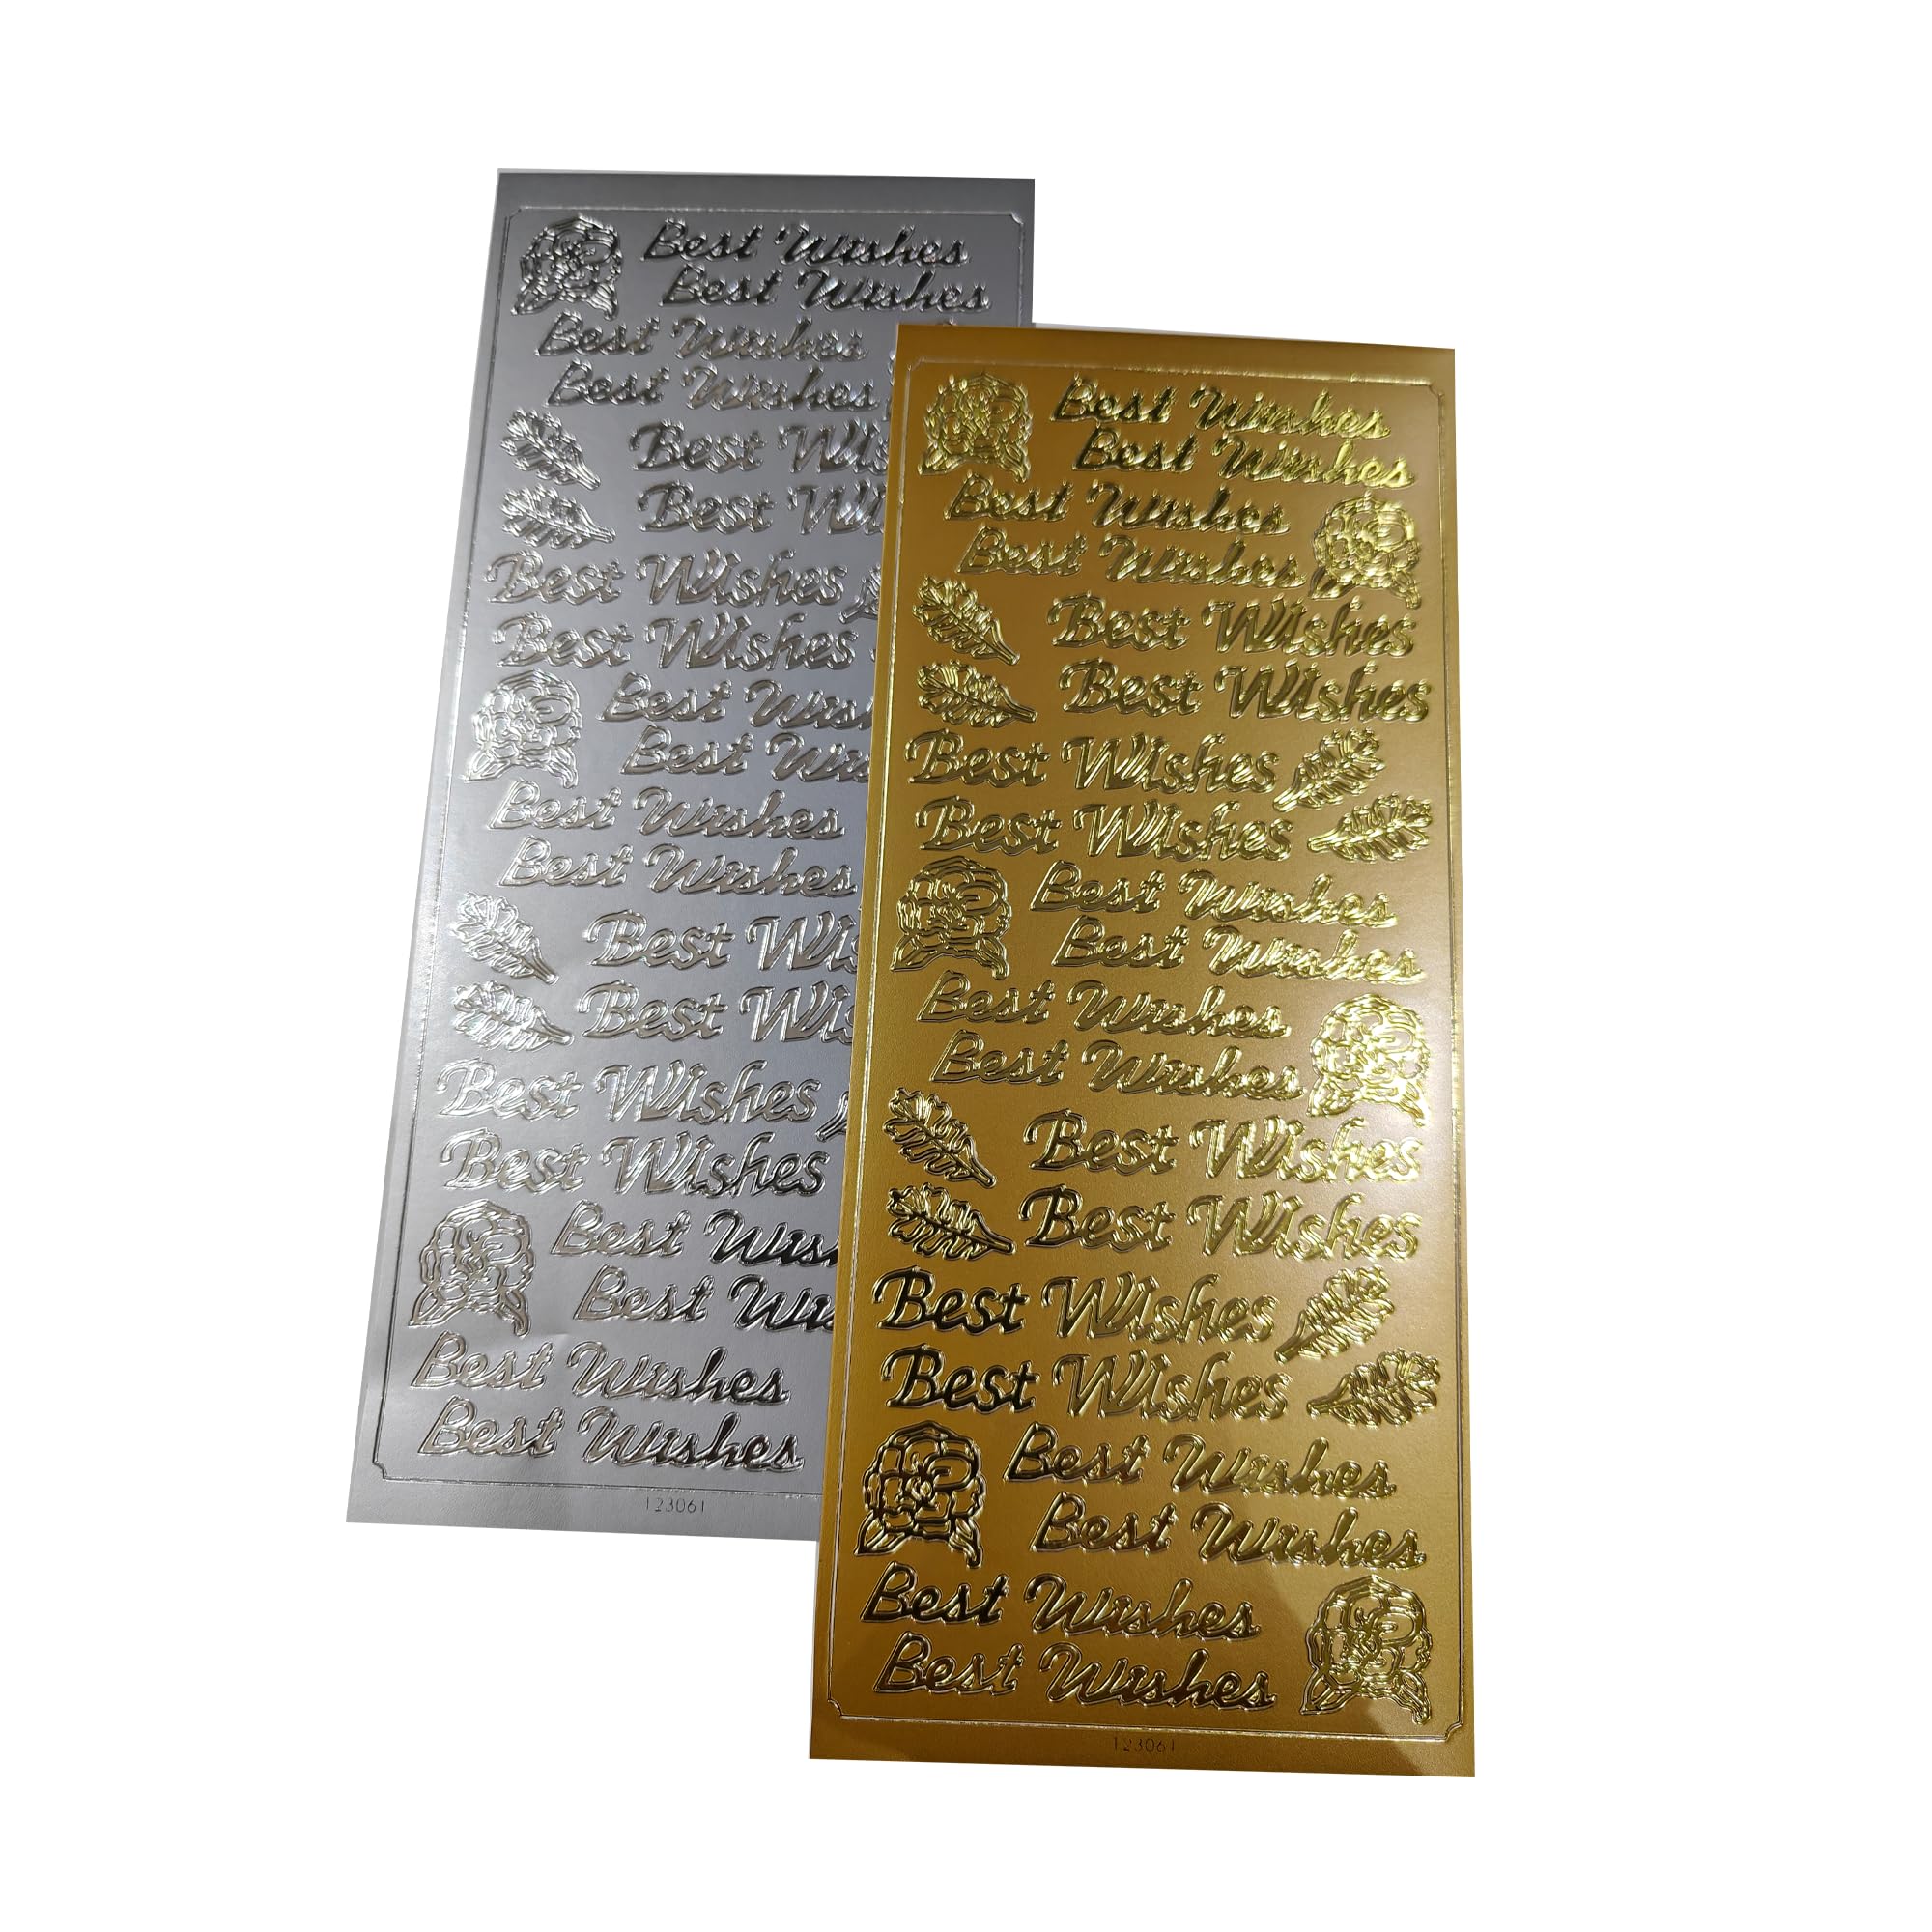 Best Wishes
Best Wishes
Best Wishes
Best Wishes
Best Wis
Best Wi
Best Wishes
Best Wishes
Best Wis
Best Wis
Best Wishes
Best Wishes
Best Wis
Best Wis
Best Wishes
Best Wishes
Best Wis
Best Wi
Best Wishes
Best Wishes
123061
Best Wishes
Best Wishes
Best Wishes
Best Wishes
Best Wishes
Best Wishes
Best Wishes
Best Wishes
Best Wishes
Best Wishes
Best Wishes
Best Wishes
Best Wishes
Best Wishes
Best Wishes
Best Wishes
Best Wishes
Best Wishes
Best Wishes
Best Wishes
123061